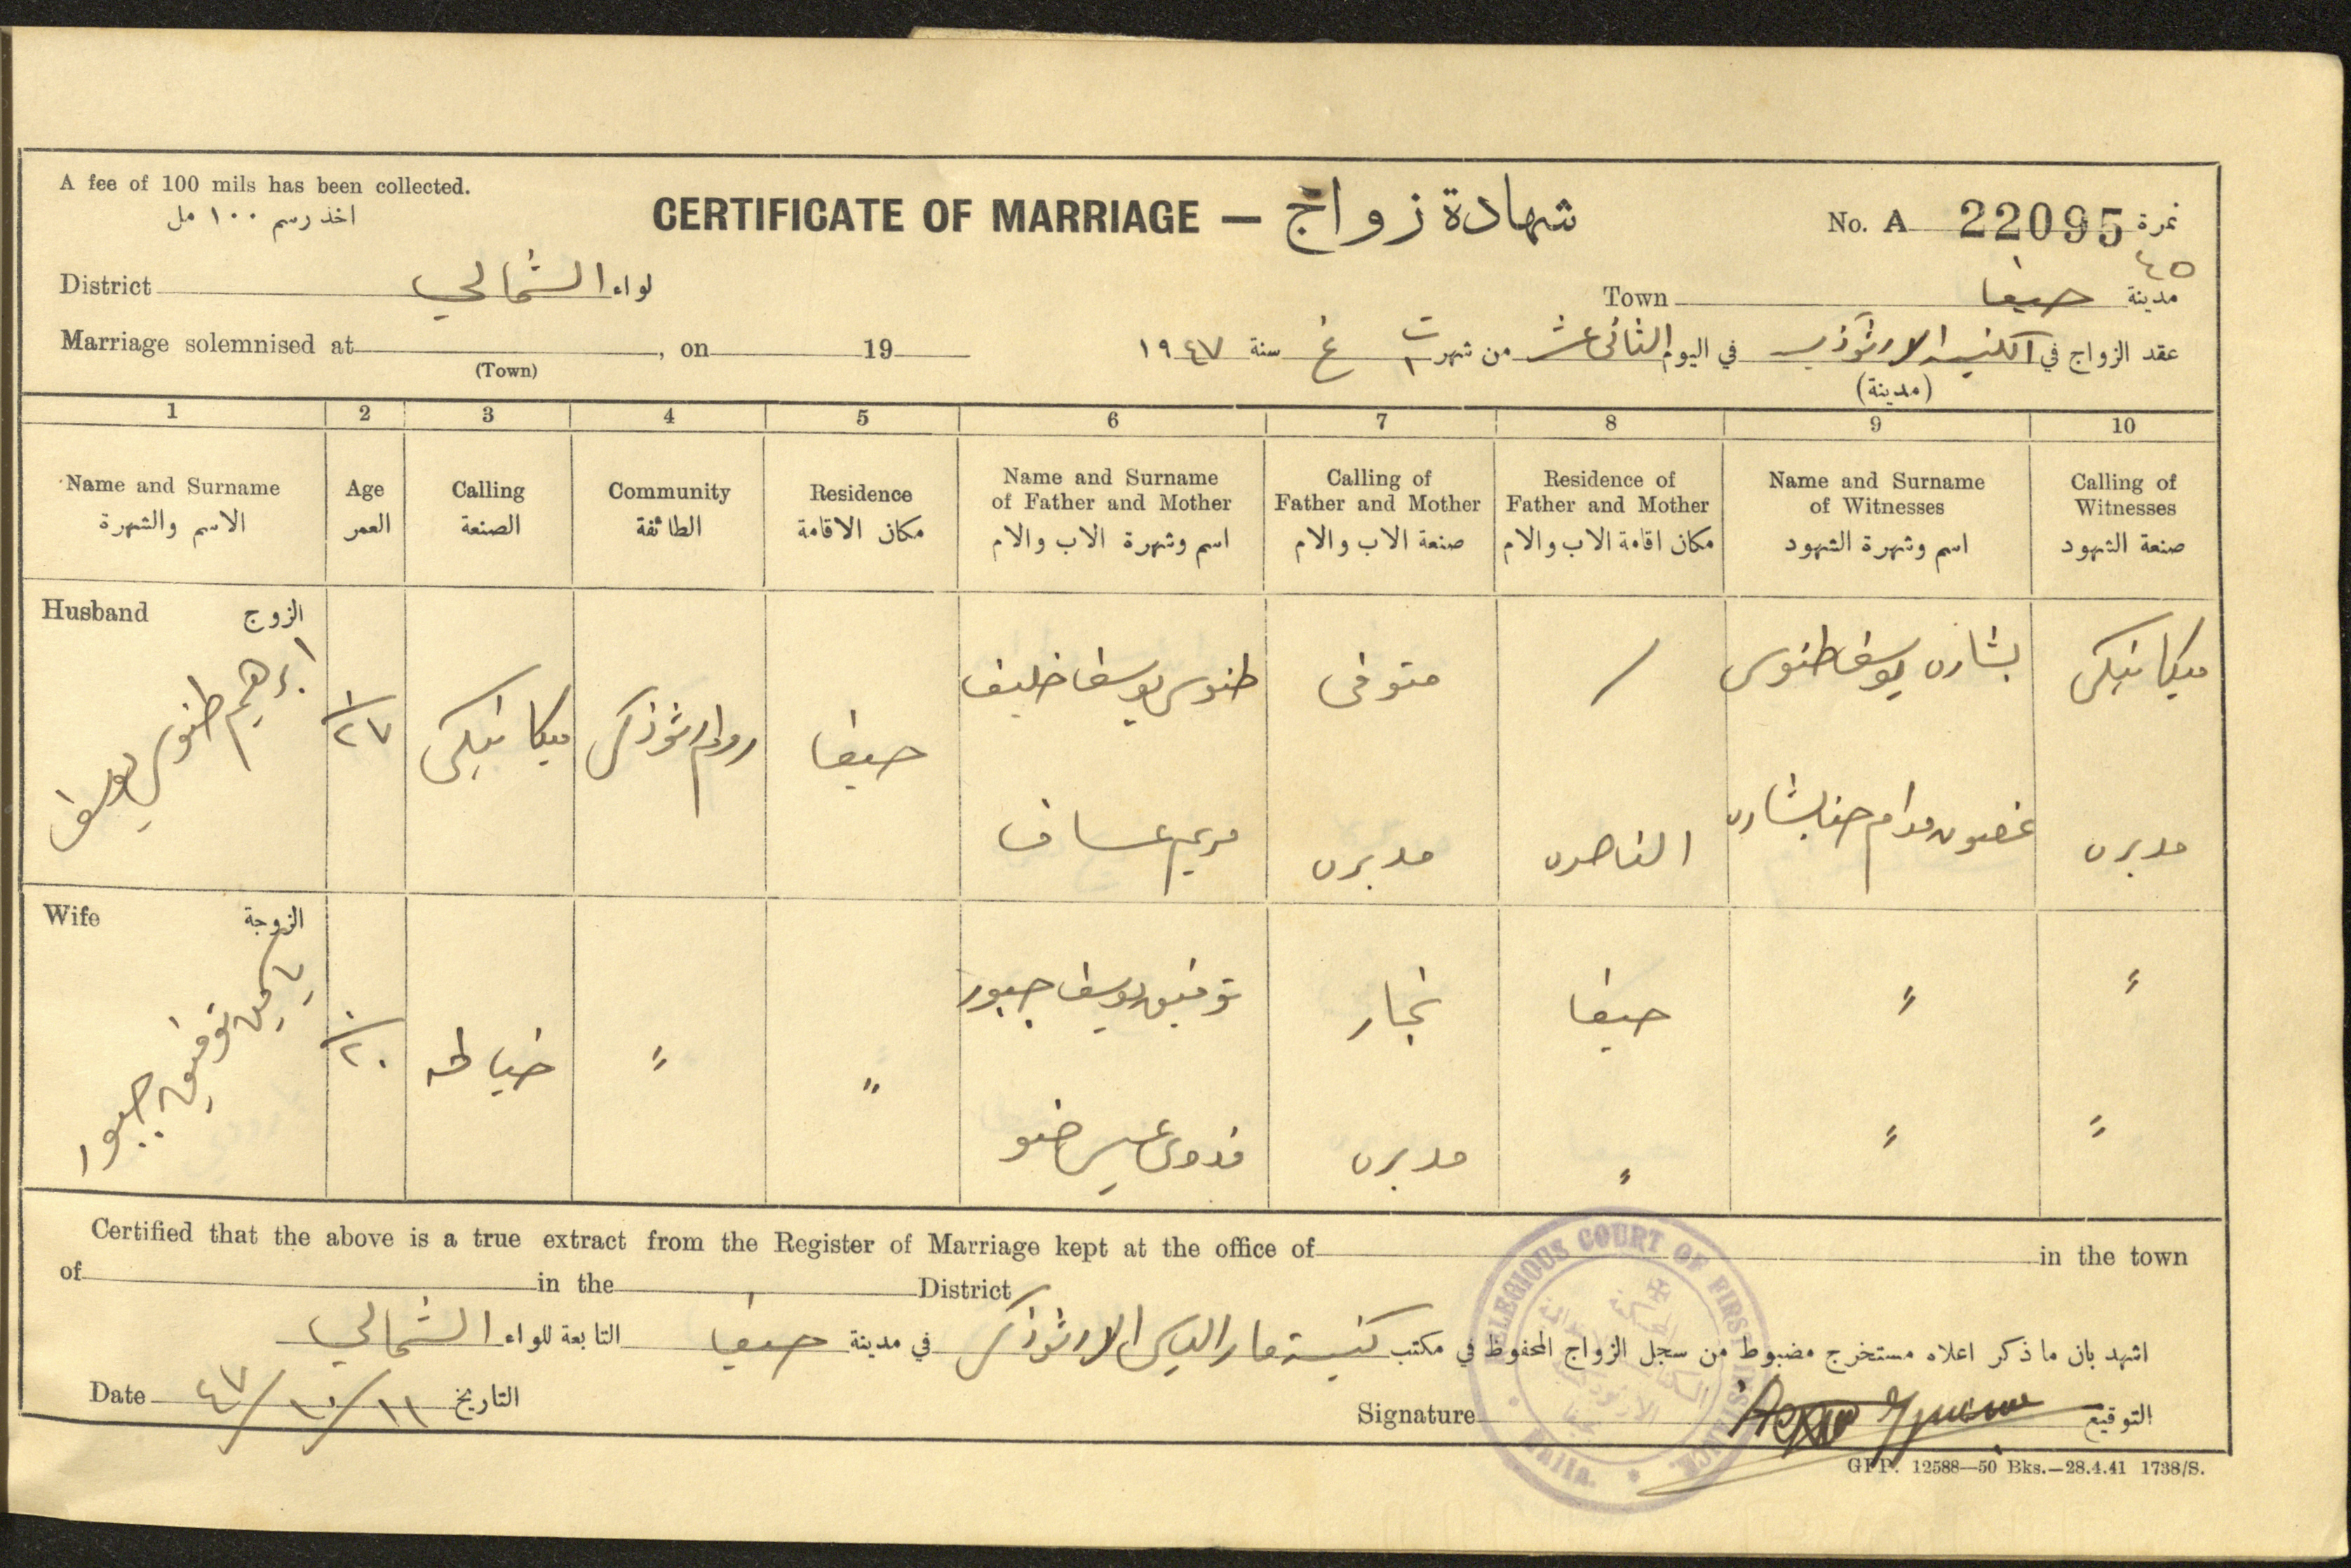 A fee of 100 mils has been collected.
اخذ رسم ١٠٠ مل
CERTIFICATE OF MARRIAGE — شهادة زواج
No. A 22095 نمرة
٤٥
District الشمالي لواء
Town حيفا مدينة
Marriage solemnised at , on 19
(Town)
عقد الزواج في الكنيسه الارثوذكسيه في اليوم الثاني عشر من شهر ت١ غ سنة ١٩٤٧
(مدينة)
1 2 3 4 5 6 7 8 9 10
Name and Surname
الاسم والشهرة
Age
العمر
Calling
الصنعة
Community
الطائفة
Residence
مكان الاقامة
Name and Surname
of Father and Mother
اسم وشهرة الاب والام
Calling of
Father and Mother
صنعة الاب والام
Residence of
Father and Mother
مكان اقامة الاب والام
Name and Surname
of Witnesses
اسم وشهرة الشهود
Calling of
Witnesses
صنعة الشهود
Husband الزوج
ابرهيم طنوس يوسف
٢٧
ميكانيكي
روم ارثوذكس
حيفا
طنوس يوسف خليف
مريم عساف
متوفى
مدبره
/
الناصره
بشاره يوسف طنوس
غصون مدام حنا بشاره
ميكانيكي
مدبره
Wife الزوجة
توفيق جبور
٢٠
خياطه
"
"
توفيق يوسف جبور
فدوى عيسى
نجار
مدبره
حيفا
"
"
"
"
"
Certified that the above is a true extract from the Register of Marriage kept at the office of in the town
of in the District
اشهد بان ما ذكر اعلاه مستخرج مضبوط من سجل الزواج المحفوظ في مكتب كنيسة مار الياس الارثوذكس في مدينة حيفا التابعة للواء الشمالي
Date ١١/١٠/٤٧ التاريخ
Signature التوقيع
RELEGIOUS COURT OF FIRST INSTANCE.
Haifa.
GPP. 12588—50 Bks.—28.4.41 1738/S.